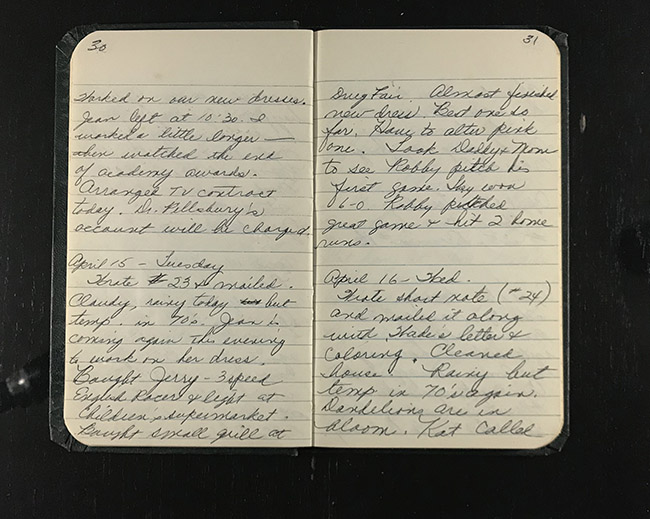 30
Worked on our new dresses.
Jean left at 10:30. I
worked a little longer —
then watched the end
of academy awards.
Arranged TV contract
today. Dr. Pillsbury's
account will be charged.
April 15 – Tuesday
Wrote #23 & mailed.
Cloudy, rainy today but
temp. in 70's. Jean is
coming again this evening
to work on her dress.
Bought Jerry – 3 speed
English Racer & light at
Children's supermarket.
Bought small grill at
31
Drug Fair. Almost finished
new dress. Best one so
far. Have to alter pink
one. Took Daddy & Mom
to see Robby pitch his
first game. They won
6-0 Robby pitched
great game & hit 2 home
runs.
April 16 – Wed.
Wrote short note (#24)
and mailed it along
with Wade's letter &
coloring. Cleaned
house. Rainy but
temp in 70's again.
Dandelions are in
bloom. Kat called